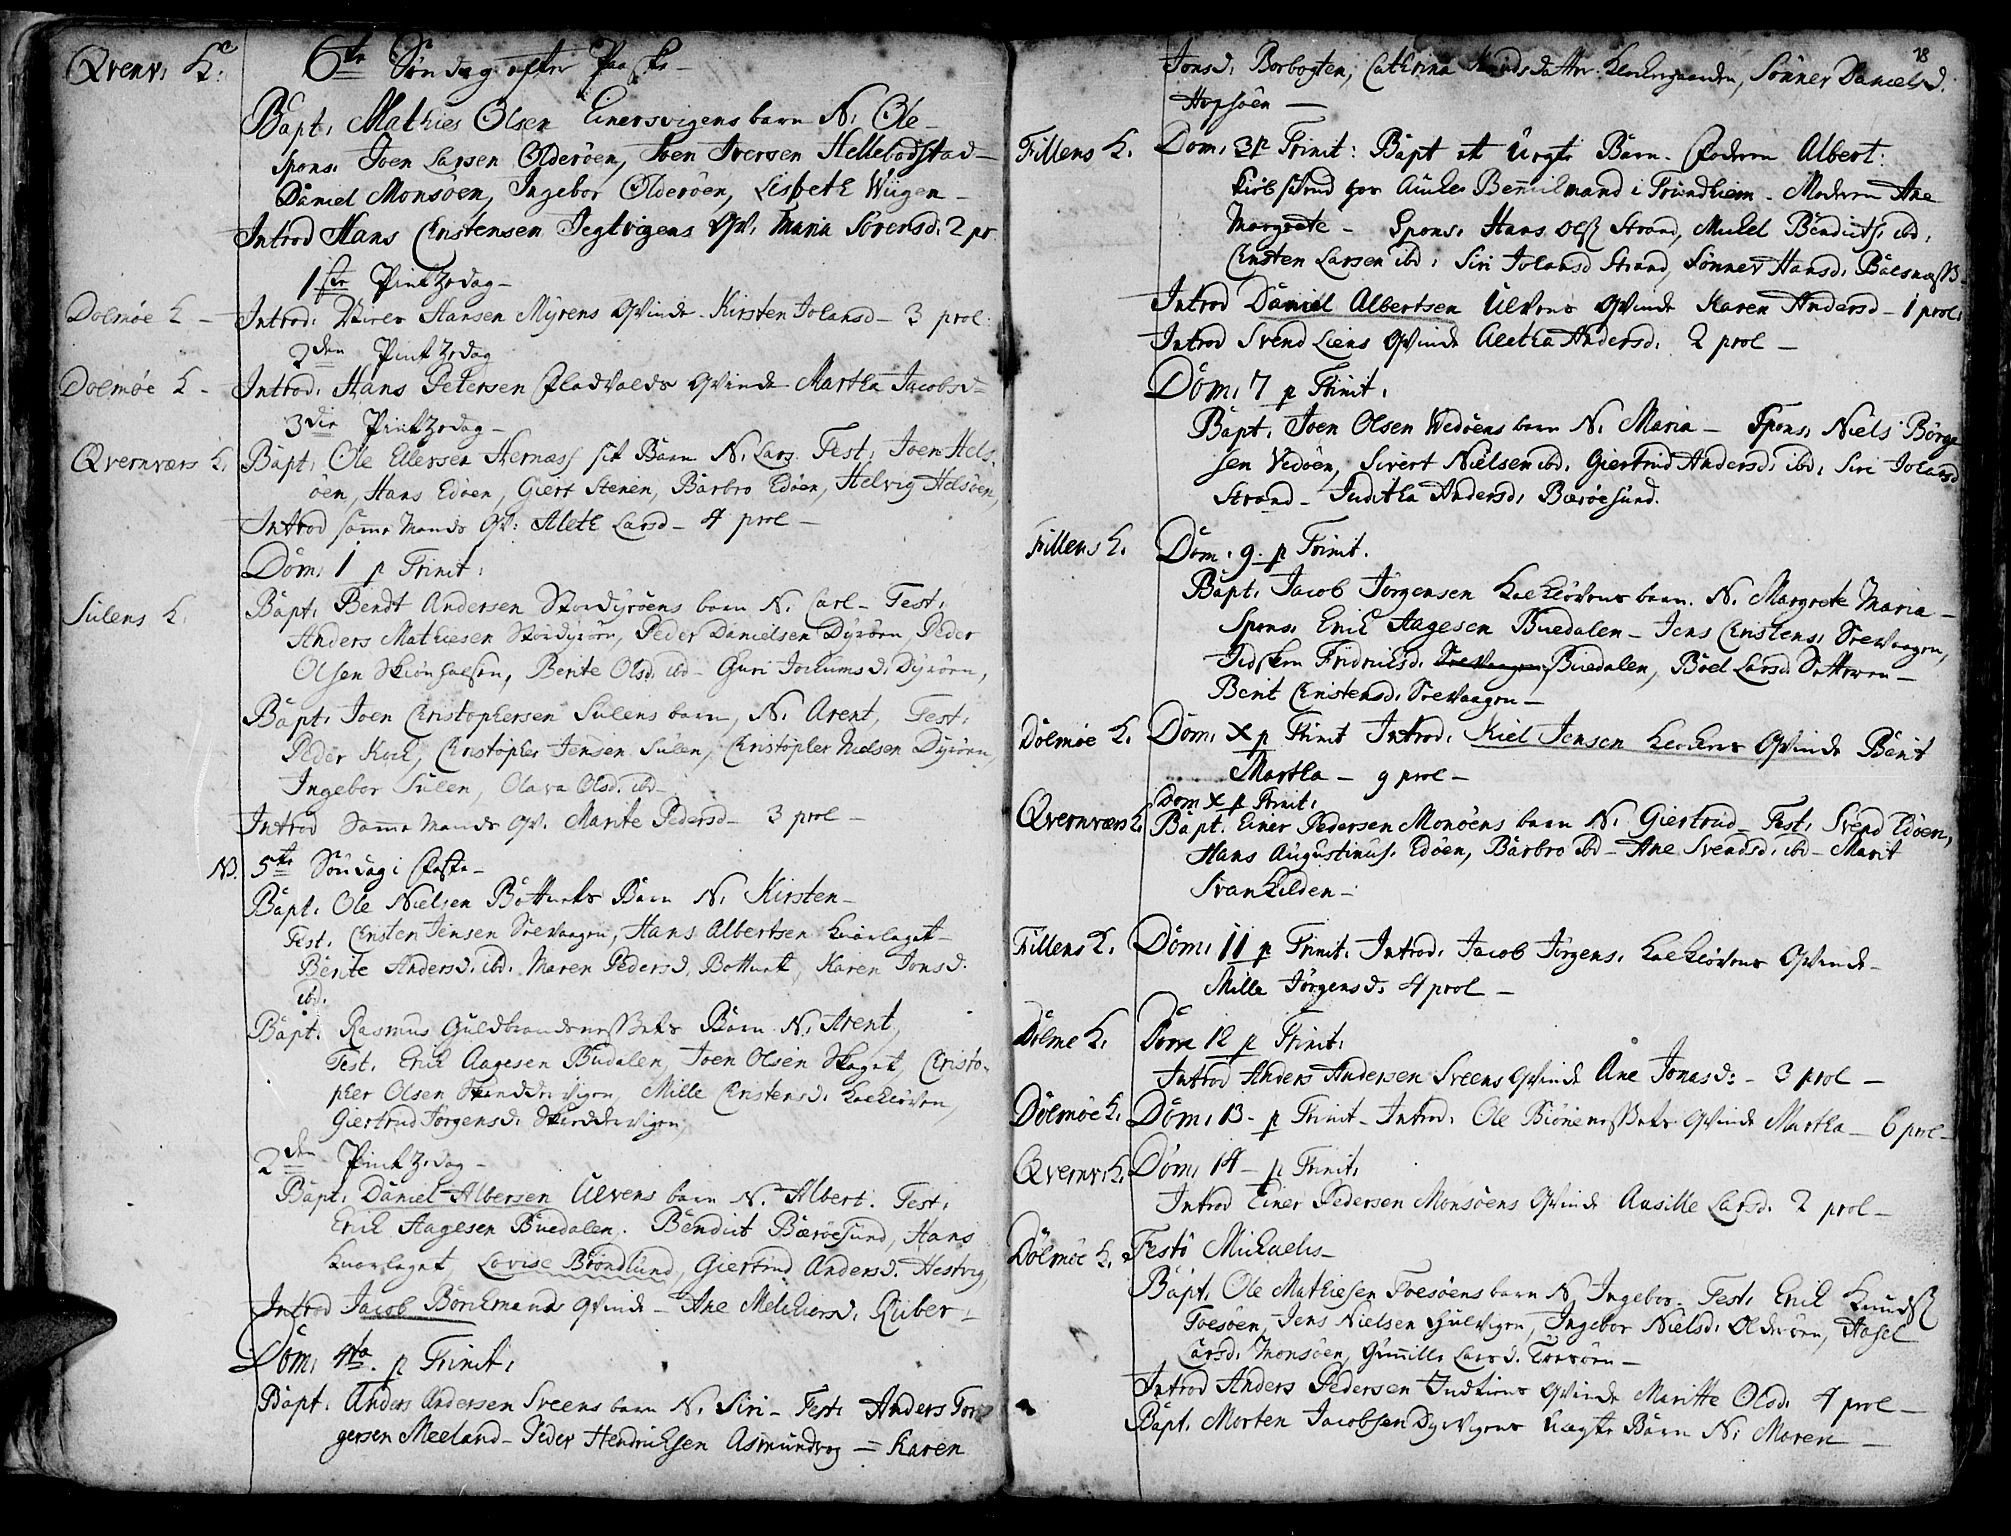 Qvenv: K: 6te Søndag efter Paaske –
Bapt: Mathies Olsen Einersvigens barn N: Ole –
Spons: Joen Larsen Olderöen, Joen Iversen Hellebodstad –
Daniel Monsöen, Ingebor Olderöen, Lisbeth Wiigen –
Introd Hans Christensen Jegtvigens Qv: Maria Sörensd: 2 pr
1ste Pintzedag –
Dolmöe K – Introd: Peter Hansen Myrens Qvinde – Kirsten Johansd – 3 prol:
2den Pintzedag
Dolmöe K – Introd: Hans Petersen Fladvalds Qvinde Martha Jacobsd –
3die Pintzedag –
Qvernværs K: Bapt: Ole Ellersen Hernæss sit Barn N: Lars. Test: Joen Hels-
öen, Hans Edöen, Giert Stenen, Barbro Edöen, Helvig Helsöen,
Introd samme Mands Qv: Aleth Larsd – 4 prol –
Dom: 1 p Trinit:
Sulens K: Bapt: Bendt Andersen Stordyröens barn N: Carl – Test:
Anders Mathiesen Stordyröen, Peder Danielsen Dyröen, Peder
Olsen Skiönhalsen, Berite Olsd. ibd – Guri Jochumsd: Dyröen,
Bapt: Joen Christophersen Sulens barn, N: Arent, Test:
Peder Kock, Christopher Jensen Sulen, Christopher Nielsen Dyröen
Ingebor Sulen, Olava Olsd. ibd –
Introd Samme Mands Qv. Marite Pedersd – 3 prol –
NB. 5te Söndag i Faste –
Bapt: Ole Nielsen Bottneks Barn N: Kirsten –
Test: Christen Jensen Srevaagen, Hans Albertsen Knorlaget –
Berite Andersd. ibd. Maren Pedersd. Bottnek, Karen Jonsd.
ibd.
Bapt: Rasmus Guldbrandsnessets Barn N: Arent,
Test. Erich Aagesen Buedalen, Joen Olsen Skaget, Christo-
pher Olsen Skreddervigen, Mille Christensd: Kaekleven,
Giertrud Jørgensd. Skreddervigen,
2den Pintzedag –
Bapt: Daniel Albersen Ulvens barn N: Albert. Test:
Erich Aagesen Buedalen. Bendict Bæröesund, Hans
Knorlaget, Lovise Bröndlund, Giertrud Andersd. Hestvig,
Introd Jacob Borchmands Qvinde – Ane Melchersd. Ruber –
Dom: 4ta. p Trinit:
Bapt: Anders Andersen Sveens barn N: Siri – Test: Anders Tor-
gersen Meeland – Peder Hendrichsen Asmundvog = Karen
18
Jonsd: Borbogten, Cathrina Knudsdatter Klockergaarden, Sönner Danielsd.
Hopsöen –
Fillens K: Dom: 3 p Trinit: Bapt et Uegte Barn. Faderen Albert:
Margrete – Spons: Hans Ols Strand, Michel Bendicts. ibd.
Christen Larsen ibd: Siri Johansd Strand, Sönnev Hansd. Balsness.
Introd Daniel Albertsen Ulvens Qvinde Karen Andersd – 1 prol:
Introd Svend Liens Qvinde Aletha Andersd: 2 prol –
Dom: 7 p Trinit:
Bapt: Joen Olsen Wedöens barn N: Maria – Spons: Niels Börge
sen Vedöen, Sivert Nielsen ibd. Giertrud Andersd: ibd: Siri Johansd
Strand – Juditha Andersd: Bæröesund.
Fillens K: Dom: 9. p Trinit.
Bapt: Jacob Jørgensen Kaeklövens barn. N: Margrete Maria –
Spons: Erich Aagesen Buedalen – Jens Christens: Srevaagen,
Fridrichsd. Srevaagen Buedalen, Boel Larsd.
Berit Christensd. Srevaagen –
Dolmöe K: Dom: X p Trinit Introd: Kiel Jensen Klockers Qvinde Berit
Martha – 9 prol –
Dom X p Trinit:
Qvernværs K: Bapt. Einer Pedersen Monsöens barn N: Giertrud – Test: Svend Edöen,
Hans Augustinus. Edöen, Barbro ibd – Ane Svendsd. ibd – Marit
Svanhilden –
Fillens K: Dom: 11 p Trinit: Introd: Jacob Jørgens: Kaeklövens Qvinde –
Mille Jørgensd: 4 prol –
Dolme K: Dom 12 p Trinit:
Introd Anders Andersen Sveens Qvinde Ane Jonasd: – 3 prol –
Dolmöe K: Dom: 13 – p Trinit – Introd: Ole Biörnenessets Qvinde Martha – 6 prol –
Qvernv: K: Dom: 14 – p Trinit:
Introd Einer Pedersen Monsöens Qvinde Aasille Larsd. 2 prol –
Dolmöe K: Festo Michaelis –
Bapt: Ole Mathiesen Foesöens barn N: Ingebor – Test: Erich Knuds
Foesöen, Jens Nielsen Gulvigen, Ingebor Nielsd: Olderöen, Hasel
Larsd: Monsöen, Gunnille Larsd. Foesöen –
Introd Anders Pedersen Qvinde Maritte Olsd: 4 prol –
Bapt: Morten Jacobsen Dyrvigens Uægte Barn N: Maren –